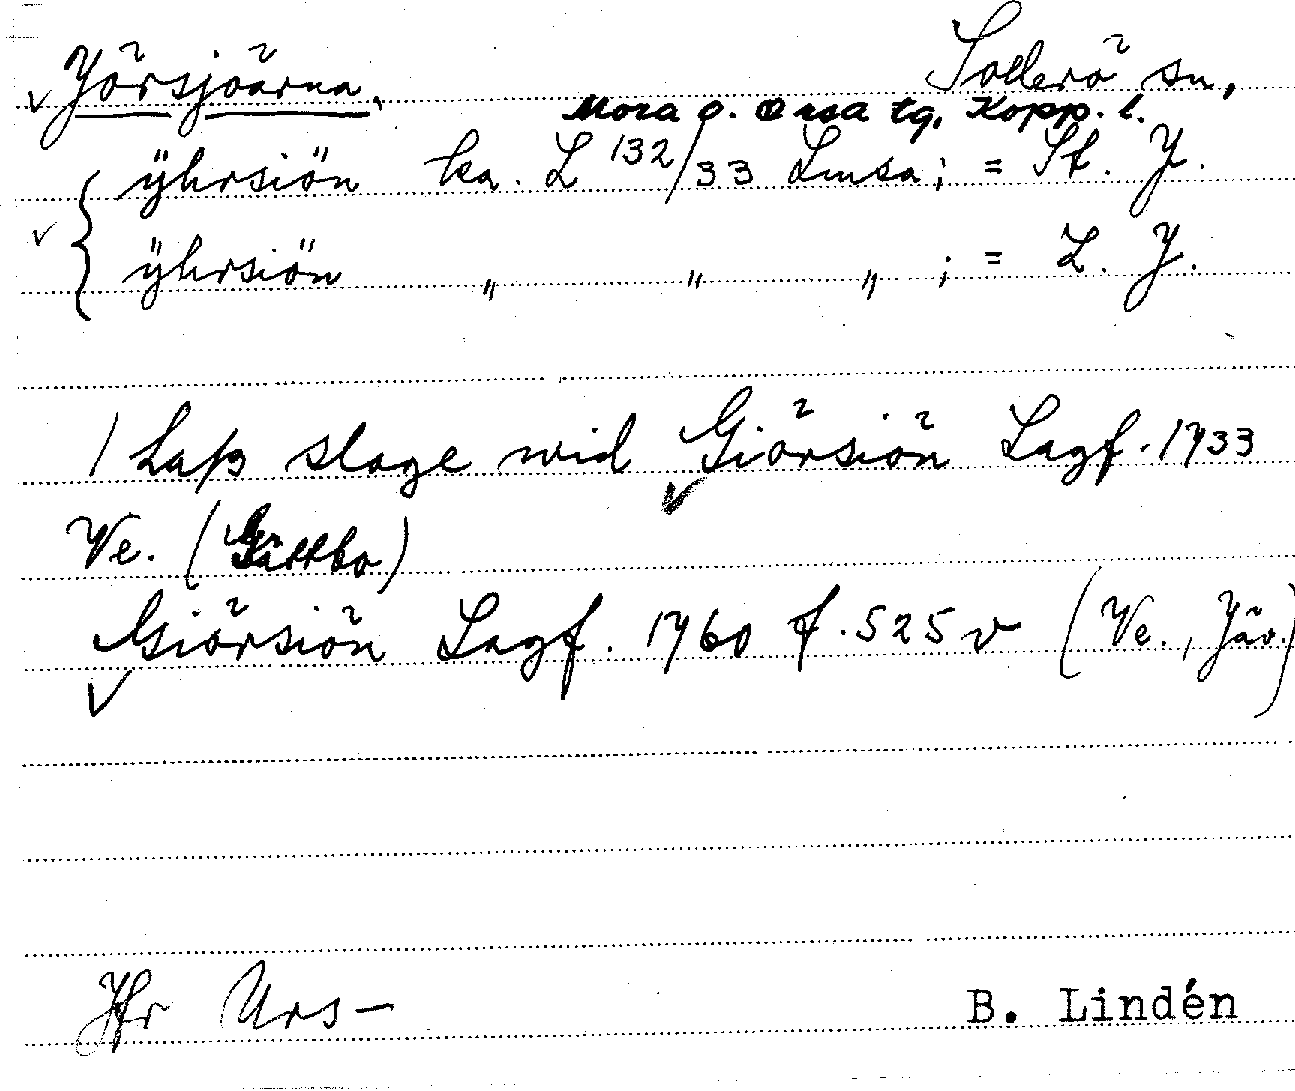 Yörsjöarna, Sollerö sn,
Mora o. Orsa tg, Kopp. l.
ÿhrsiön ka. L 132/33 Lmsa; = St. Y.
ÿhrsiön " " " ; = L. Y.
1 Laß slage wid Giörsiön Lagf. 1733
Ve. (Gättbo)
Giörsiön Lagf. 1760 f. 525 v (Ve., Jäv.)
Jfr Urs-
B. Lindén